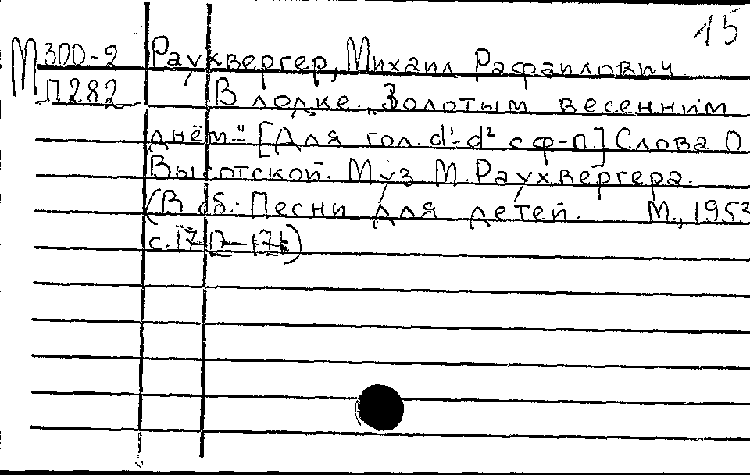 15
М 300-2 Раухвергер, Михаил Рафаилович
П282 В лодке. „Золотым весенним
днём..." [Для гол. d¹-d² с ф-п] Слова О.
Высотской. Муз М. Раухвергера.
(В сб.: Песни для детей. М., 1953